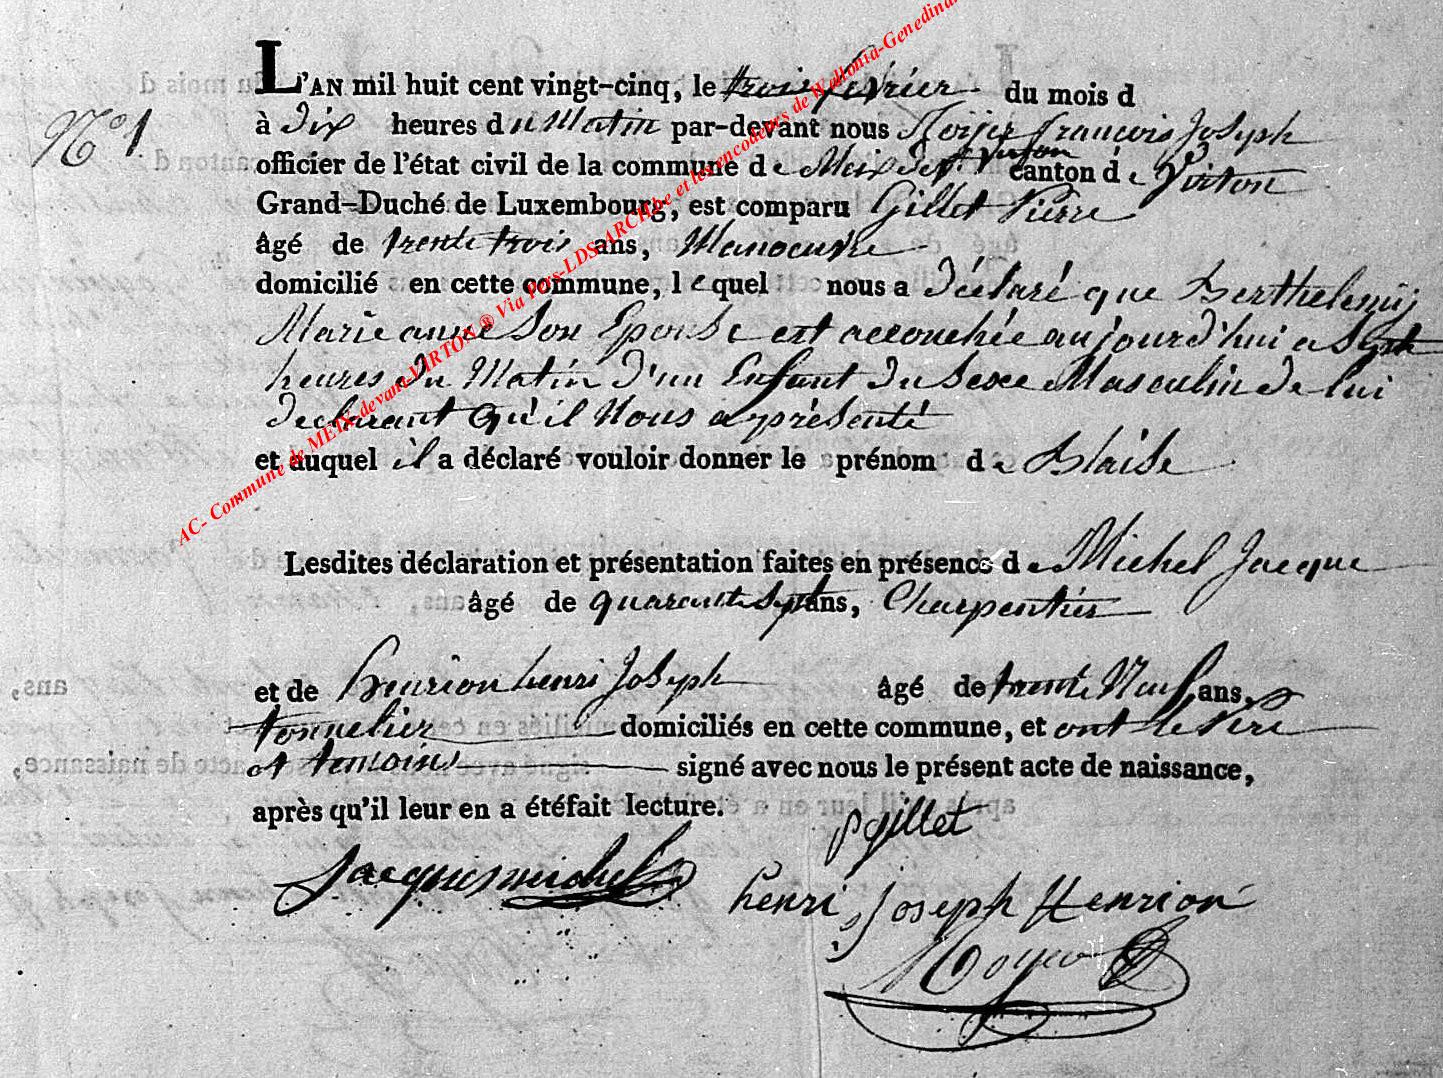 N° 1
L'AN mil huit cent vingt-cinq, le trois fevrier du mois d
à Dix heures du Matin par-devant nous François Joseph
officier de l'état civil de la commune de Meix devt Virton canton de Virton
Grand-Duché de Luxembourg, est comparu Gillet Pierre
âgé de trente trois ans, Manoeuvre
domicilié en cette commune, lequel nous a déclaré que Berthelemij
Marie anne Son Epouse est accouchée aujourd'hui a Sept
heures du Matin d'un Enfant du Sexe Masculin de lui
declarant qu'il Nous a présenté
et auquel il a déclaré vouloir donner le prénom de Blaise
Lesdites déclaration et présentation faites en présence de Michel Jacque
âgé de quarante Sept ans, Charpentier
et de henrion henri Joseph âgé de trente Neuf ans,
tonnelier domiciliés en cette commune, et ont le Père
et temoins signé avec nous le présent acte de naissance,
après qu'il leur en a été fait lecture.
p gillet
Jacques michel
henri joseph Henrion
AC- Commune de MEIX-devant-VIRTON ® Via Pers-LDS-ARCH.be et les encodeurs de Wallonia-Genedina